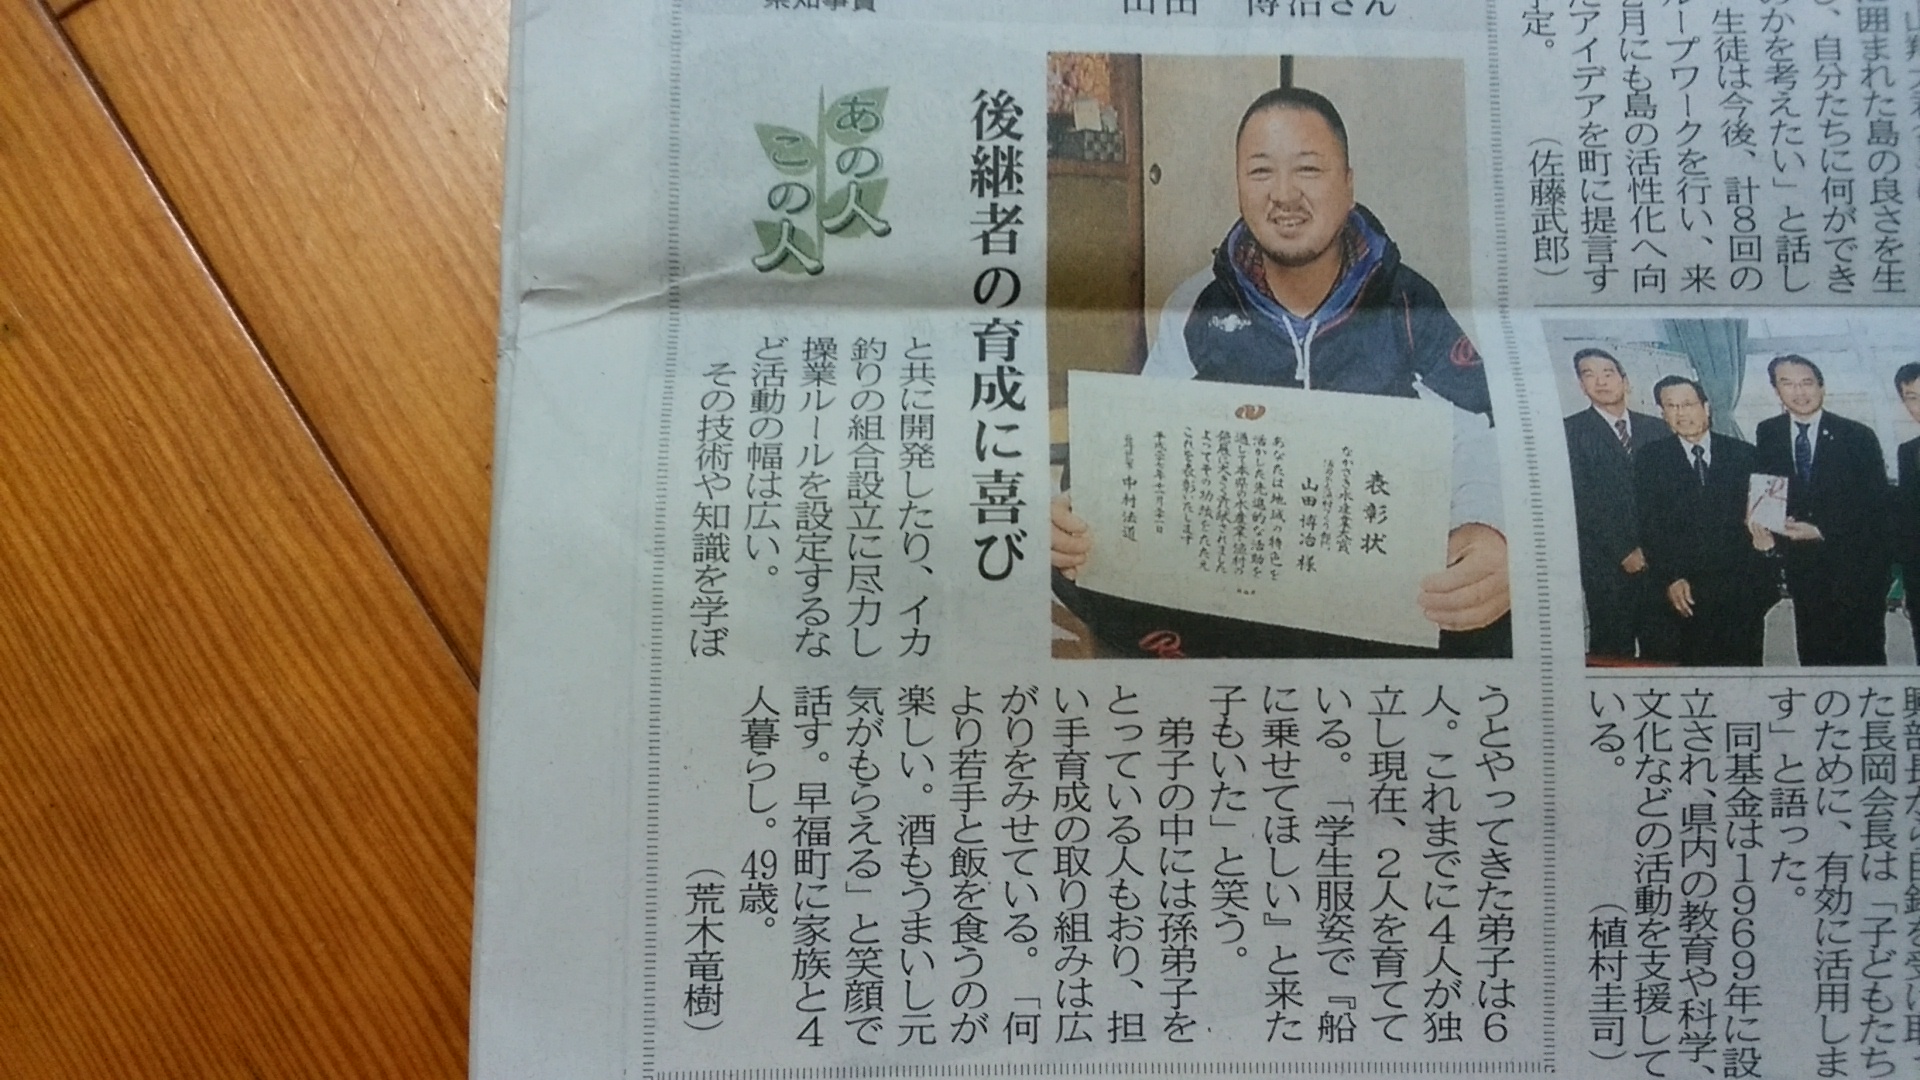 県知事賞
山田　博治さん
あの人
この人
後継者の育成に喜び
と共に開発したり、イカ
釣りの組合設立に尽力し
操業ルールを設定するな
ど活動の幅は広い。
その技術や知識を学ぼ
うとやってきた弟子は６
人。これまでに４人が独
立し現在、２人を育てて
いる。「学生服姿で『船
に乗せてほしい』と来た
子もいた」と笑う。
弟子の中には孫弟子を
とっている人もおり、担
い手育成の取り組みは広
がりをみせている。「何
より若手と飯を食うのが
楽しい。酒もうまいし元
気がもらえる」と笑顔で
話す。早福町に家族と４
人暮らし。49歳。
（荒木竜樹）
表彰状
ながさき水産業大賞
山田博治様
あなたは地域の特色を
活かした先進的な活動を
通して本県の水産業・漁村の
発展に大きく貢献されました
よってその功績をたたえ
これを表彰いたします
中村法道
に囲まれた島の良さを生
し、自分たちに何ができ
のかを考えたい」と話し
生徒は今後、計８回の
ループワークを行い、来
２月にも島の活性化へ向
たアイデアを町に提言す
予定。
（佐藤武郎）
た長岡会長は「子どもたち
のために、有効に活用しま
す」と語った。
同基金は１９６９年に設
立され、県内の教育や科学、
文化などの活動を支援して
いる。
（植村圭司）